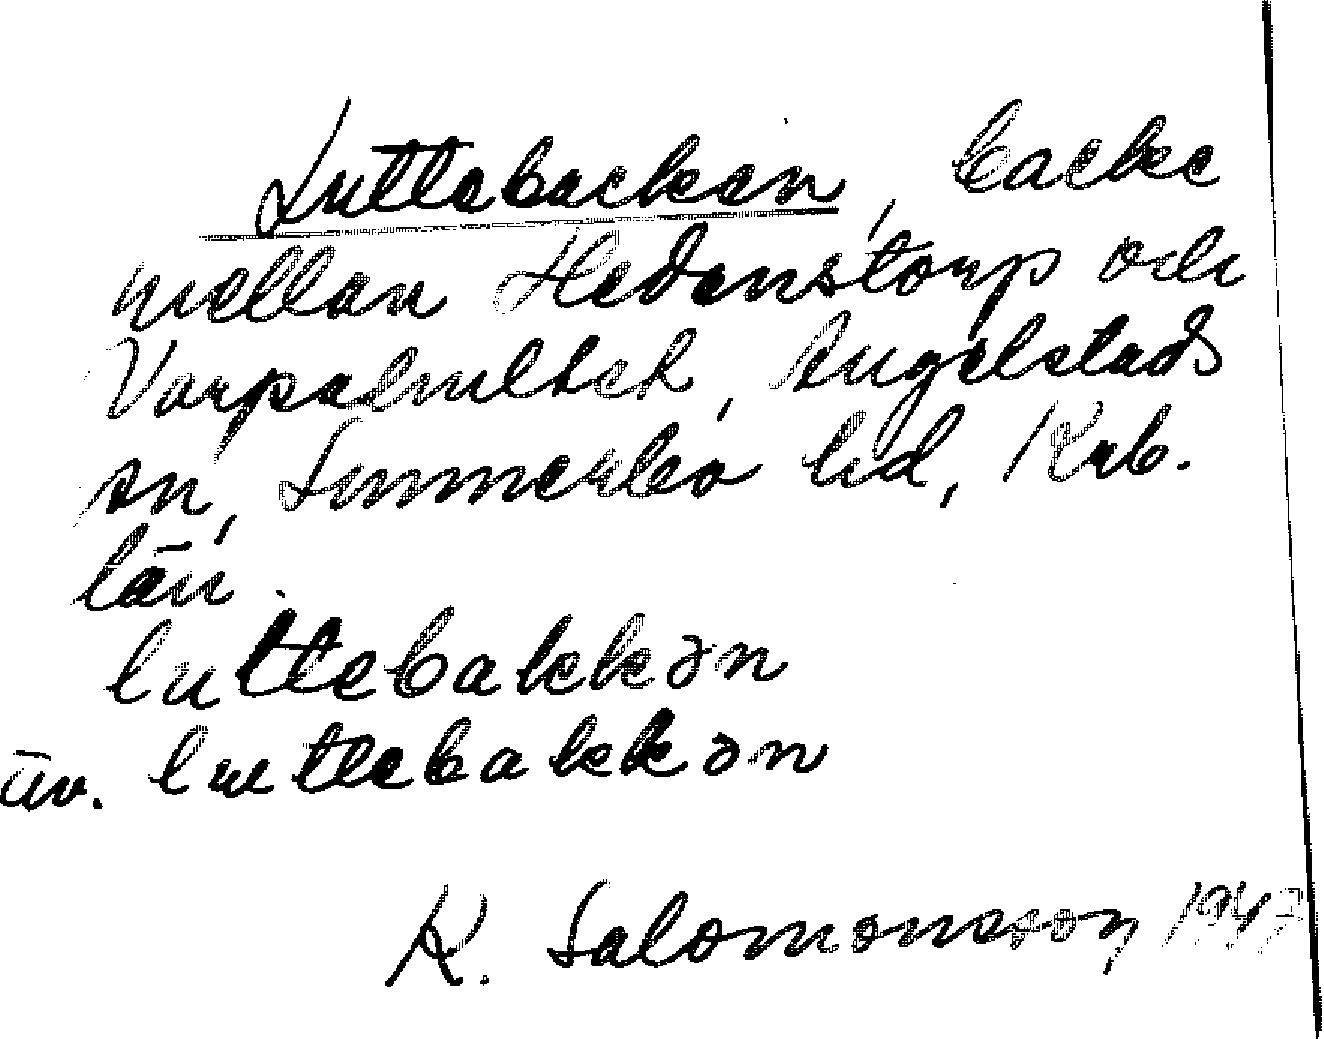 Luttebacken, backe
mellan Hedenstorp och
Varpahultsek, Angelstads
sn, Sunnerbo hd, Krb.
län.
luttebakkən
uv. luttebakkən
K. Salomonsson 1947